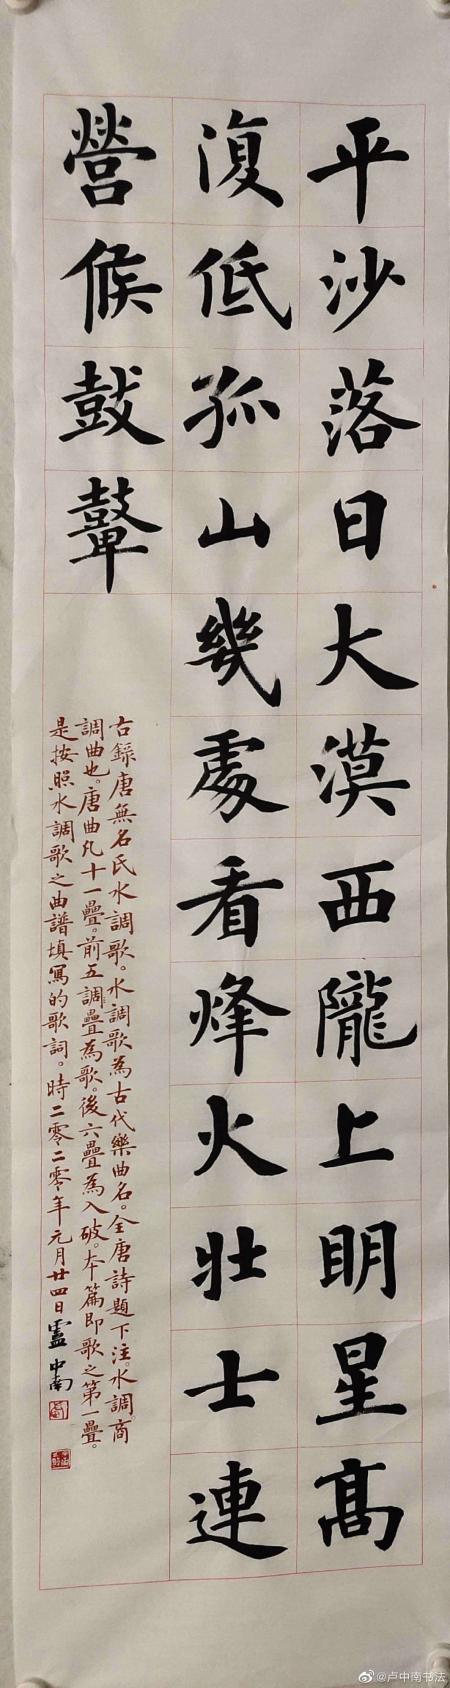 平沙落日大漠西隴上明星高
復低孤山幾處看烽火壯士連
營候鼓鼙
右錄唐無名氏水調歌。水調歌為古代樂曲名。全唐詩題下注。水調。商
調曲也。唐曲凡十一疊。前五調疊為歌。後六疊為入破。本篇即歌之第一疊。
是按照水調歌之曲譜填寫的歌詞。時二零二零年元月廿四日盧中南
@卢中南书法